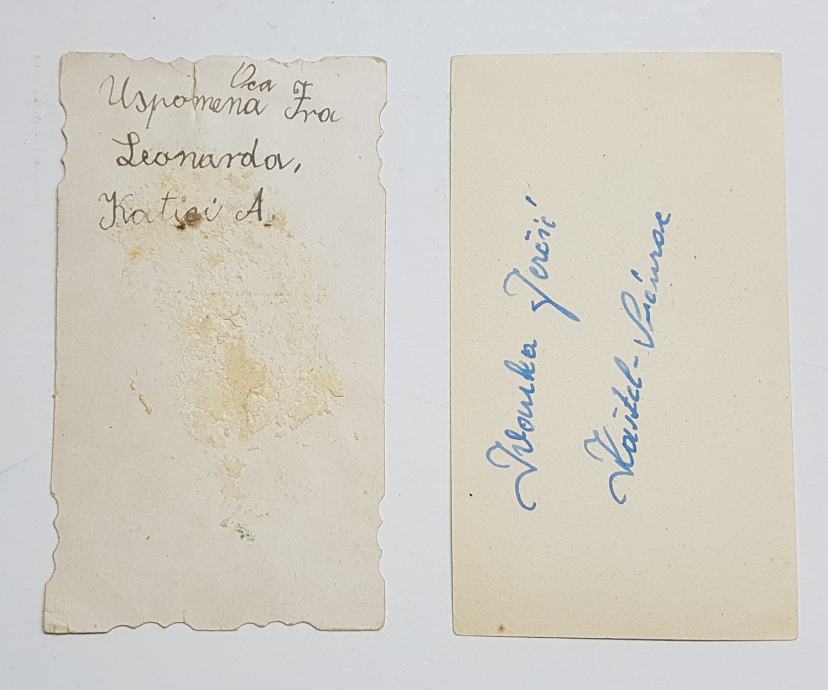 Uspomena Oca Fra
Leonarda,
Katici A.
Ivanka Jerčić
Kaštel-Sućurac